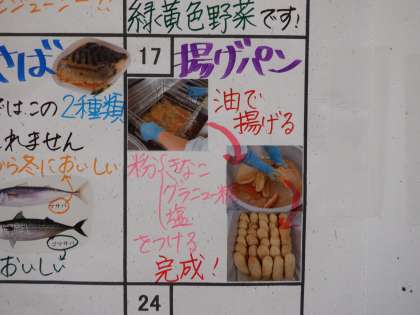 緑黄色野菜です!
さば
ではこの2種類
れません
から冬においしい
マサバ
ゴマサバ
おいしい
17 揚げパン
油で
揚げる
粉 きなこ
グラニュー糖
塩
をつける
完成!
24